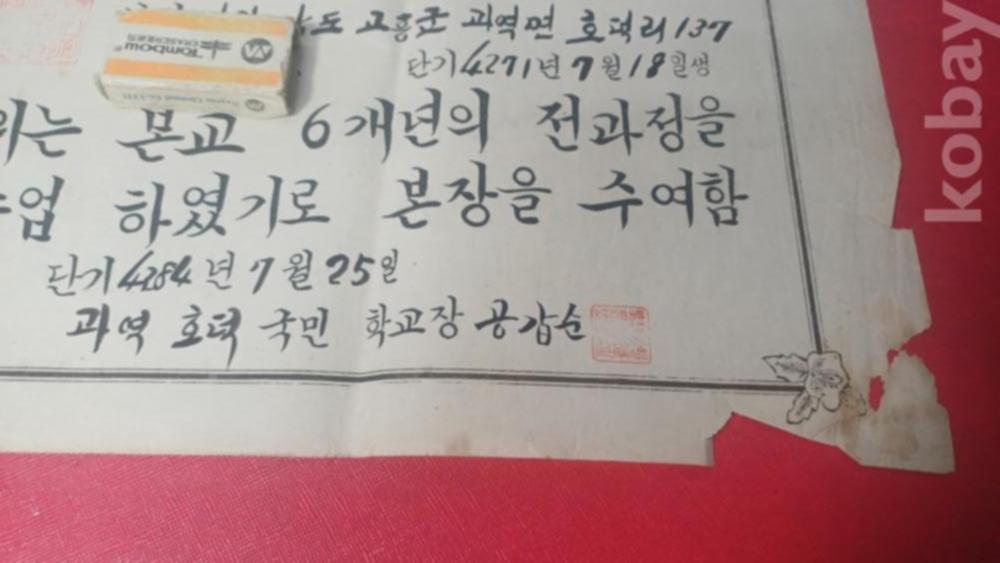 도 고흥군 과역면 호덕리 137
단기 4271년 7월 18일생
위는 본교 6개년의 전과정을
수업 하였기로 본장을 수여함
단기 4284년 7월 25일
과역 호덕 국민 학교장 공갑순
Tombow
kobay